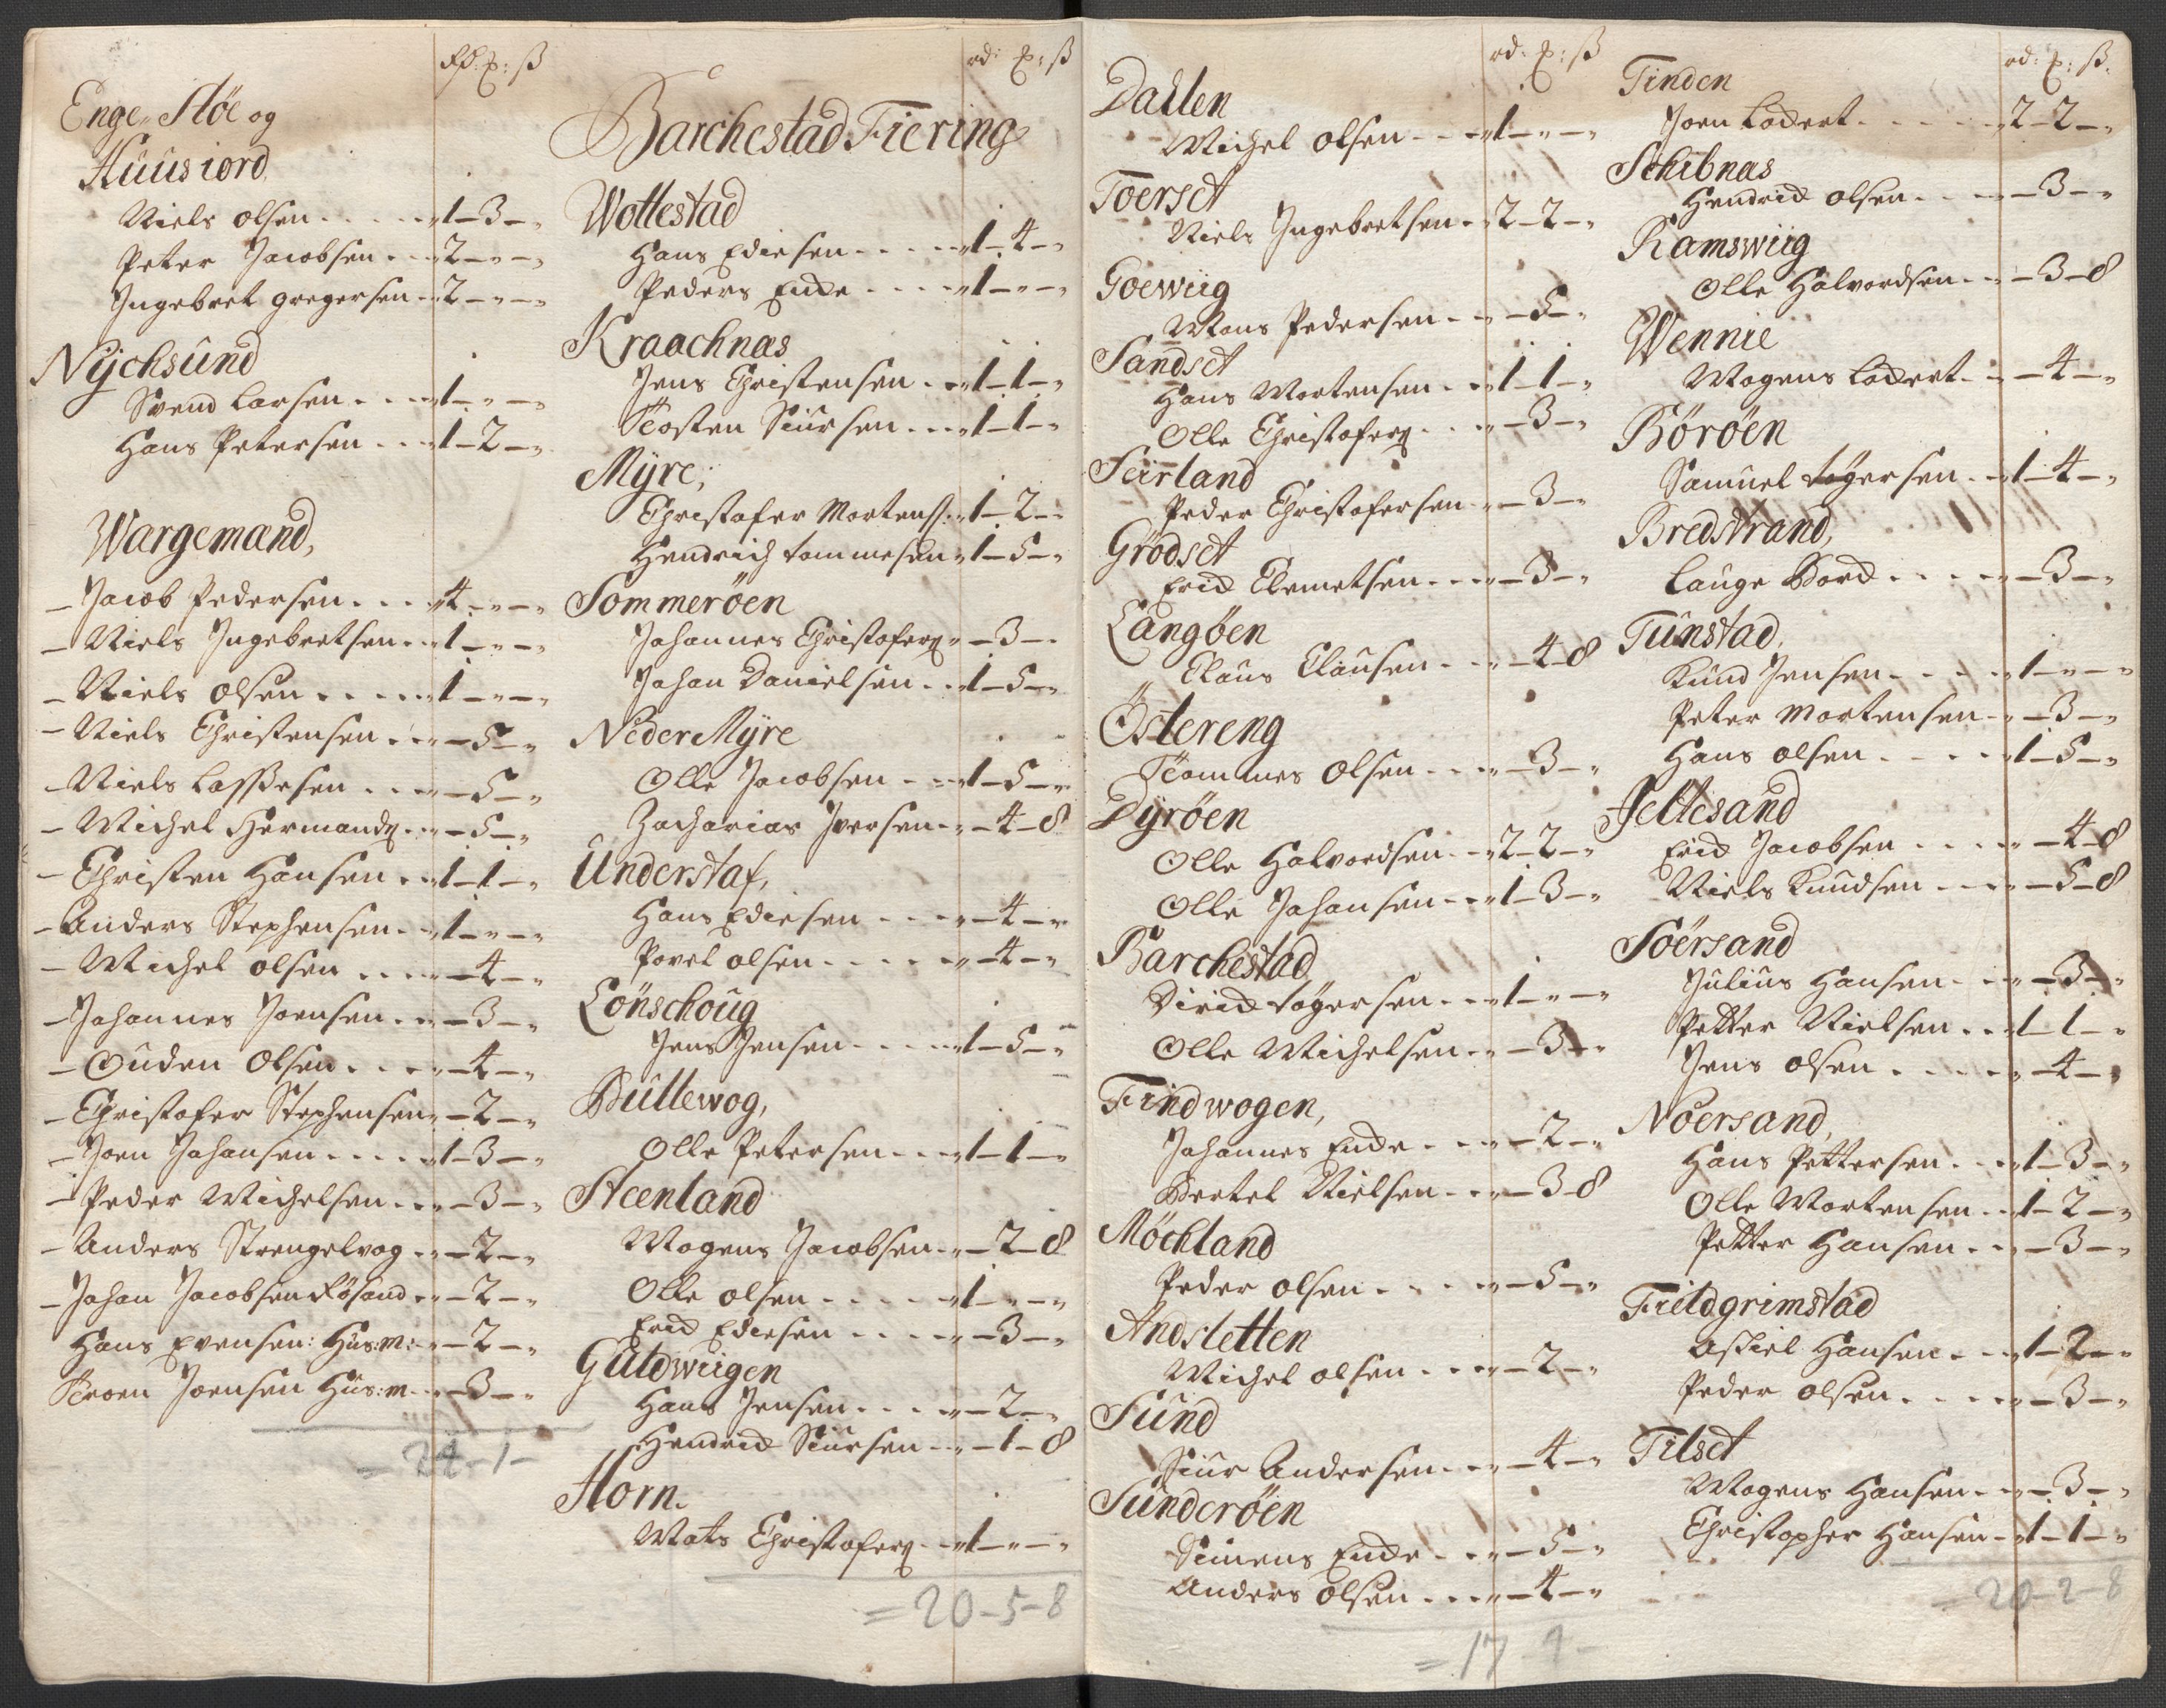 Rd: £: ß
Enge, Støe og
Huusiord
Niels olsen . . . . . " 1 – 3 – "
Peter Jacobsen . . . " 2 – " – "
Ingebret gregersen " 2 – " – "
Nÿchsund
Svend Larsen . . . " 1 – " – "
Hans Petersen . . . " 1 – 2 – "
Wargemand,
– Jacob Pedersen . . . " 4 – " – "
– Niels Ingebretsen . . " 1 – " – "
– Niels olsen . . . . . " 1 – " – "
– Niels Christensen . . " – 5 – "
– Niels Lassesen . . . " – 5 – "
– Michel Hermands . . " – 5 – "
– Christen Hansen . . " 1 – 1 – "
– Anders Stephensen . . " 1 – " – "
– Michel olsen . . . . " – 4 – "
– Johannes Joensen . . " – 3 – "
– Ouden Olsen . . . " – 4 – "
– Christofer Stephensen " – 2 – "
– Joen Johansen . . . . " 1 – 3 – "
– Peder Michelsen . . " – 3 – "
– Anders Strengelvog . . " – 2 – "
– Johan Jacobsen Røsand . " – 2 – "
Hans Evensen: Huus:M: " – 2 – "
Joensen Huus:m . " – 3 – "
= 24 – 1 –
rd: £: ß
Barchestad Fiering
Wottestad
Hans Edissen . . . . " 1 – 4 – "
Peders Encke . . . . " 1 – " – "
Kraachnas
Jens Christensen . . " 1 – 1 – "
Tosten Siursen . . . " 1 – 1 – "
Mÿre,
Christofer Mortens: " 1 – 2 – "
Hendrich tommesen " 1 – 5 – "
Sommerøen
Johannes Christofers " – 3 – "
Johan Danielsen . . " 1 – 5 – "
Neder Mÿre
Olle Jacobsen . . . " 1 – 5 – "
Zacharias Iversen . " – 4 – 8
Understaf,
Hans Edissen . . . " – 4 – "
Povel olsen . . . . . " – 4 – "
Lönschoug
Jens Jensen . . . . " 1 – 5 – "
Bultewog,
Olle Petersen . . . " 1 – 1 – "
Steenland
Mogens Jacobsen . " – 2 – 8
Olle olsen . . . . . " 1 – " – "
Erick Edissen . . . . " – 3 – "
Guldwiigen
Hans Jensen . . . . " – 2 – "
Hendrick Siursen . . " – 1 – 8
Horn.
Mats Christofers . . " 1 – " – "
= 20 – 5 – 8
rd: £: ß
Dallen
Michel olsen . . . " 1 – " – "
Toerset
Niels Ingebretsen . " 2 – 2 – "
Goewiig
Mons Pedersen . . " – 5 – "
Sandset
Hans Mortensen . . " 1 – 1 – "
Olle Christofers . . . " – 3 – "
Seirland
Peder Christofersen " – 3 – "
Grødset
Erick Clemetsen . . . " – 3 – "
Langöen
Claus Clausen . . . " – 4 – 8
Östereng
Tommes Olsen . . . " – 3 – "
Dÿröen
Olle Halvordsen . . " 2 – 2 – "
Olle Johansen . . " 1 – 3 – "
Barchestad
Dirick tøgersen . . . " 1 – " – "
Olle Michelsen . . " – 3 – "
Findwogen,
Johannes Encke . . . " – 2 – "
Bertel Nielsen . . . " – 3 – 8
Möchland
Peder olsen . . . . " – 5 – "
Andsletten
Michel olsen . . . . " – 2 – "
Sund
Siur Andersen . . . " – 4 – "
Sunderöen
Simens Encke . . . " – 5 – "
Anders Olsen . . . . " – 4 – "
= 17
rd: £: ß.
Tinden
Joen Lockert . . . . . " 2 – 2 – "
Schibnas
Hendrick olsen . . . " – 3 – "
Ramswiig
Olle Halvordsen . . " – 3 – 8
Wennie
Mogens Lockert . . " – 4 – "
Börøen
Samuel tøgersen . . " 1 – 4 – "
Bredstrand,
Lauge Bord . . . . . " – 3 – "
Tunstad,
Knud Jensen . . . . " 1 – " – "
Peter Mortensen . " – 3 – "
Hans olsen . . . . " 1 – 5 – "
Jeltesand
Erick Jacobsen . . . . " – 4 – 8
Niels Knudsen . . . " – 5 – 8
Söersand
Julius Hansen . . . " – 3 – "
Petter Nielsen . . . " 1 – 1 – "
Jens olsen . . . . . " – 4 – "
Noersand,
Hans Pettersen . . . " 1 – 3 – "
Olle Mortensen . . " 1 – 2 – "
Petter Hansen . . " – 3 – "
Fritdgrimstad
Askiel Hansen . . . " 1 – 2 – "
Peder olsen . . . . " – 3 – "
Tilset
Mogens Hansen . . " – 3 – "
Christopher Hansen . " 1 – 1 – "
= 20 – 2 – 8